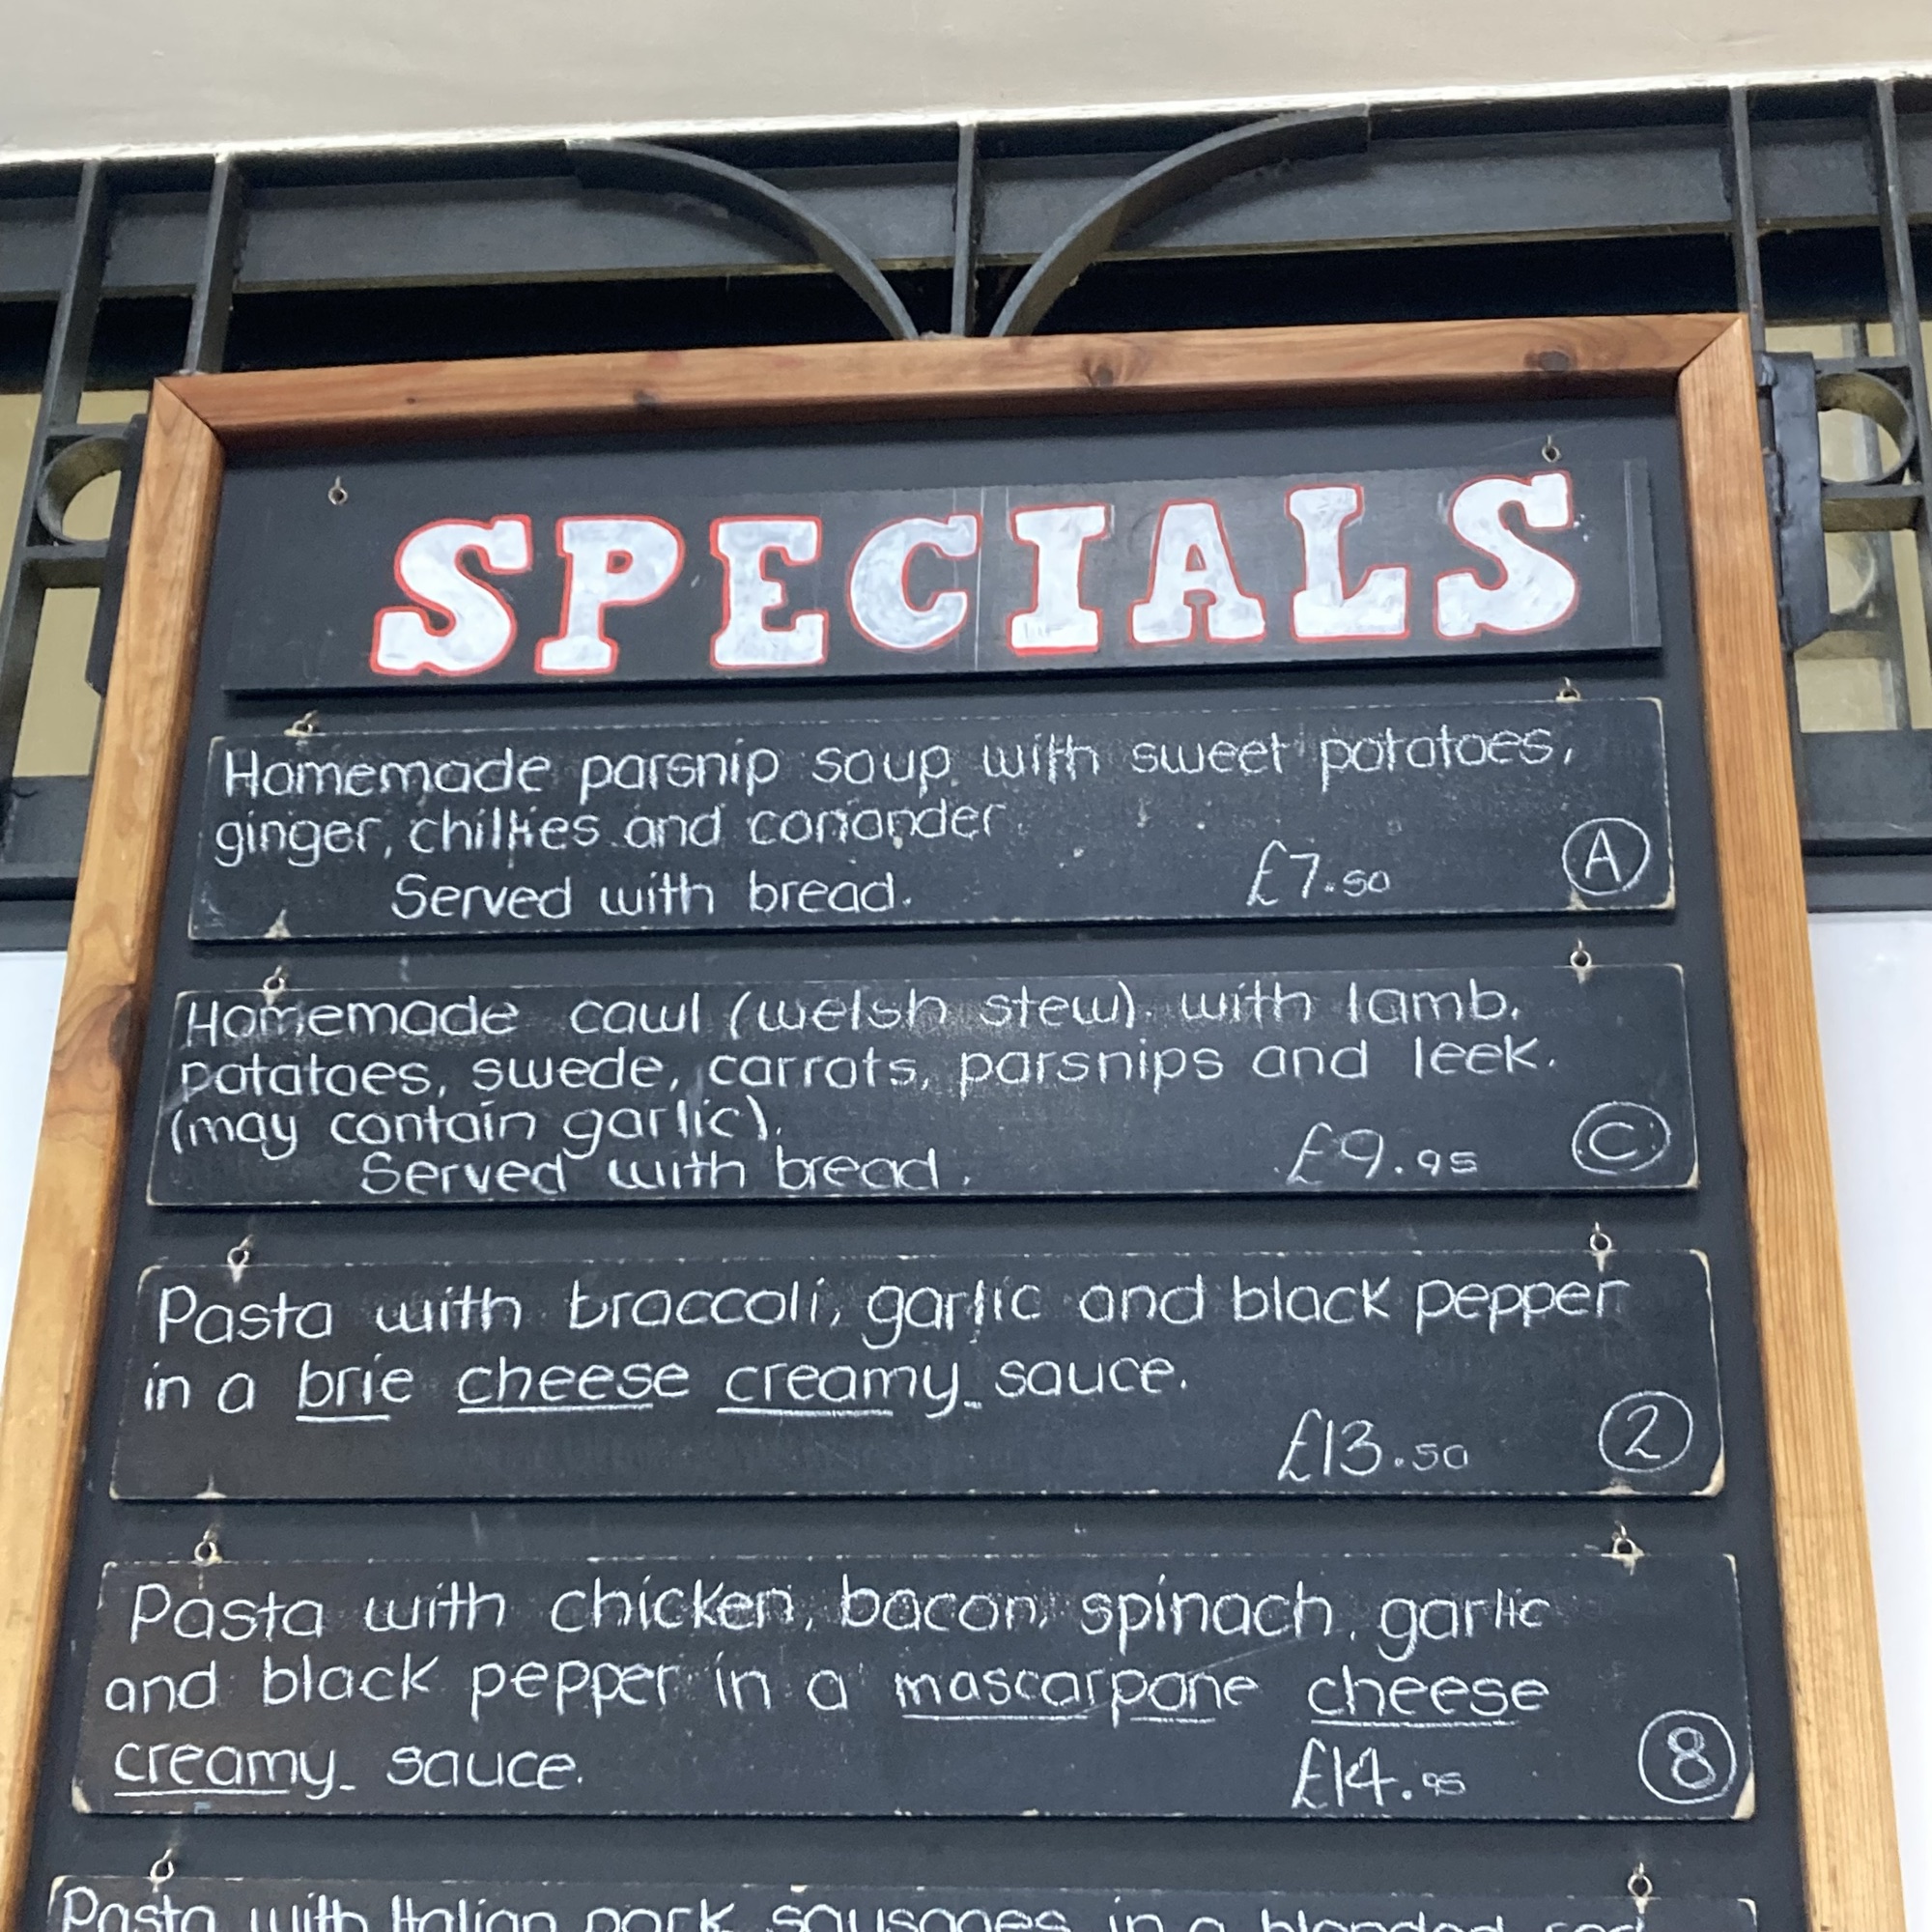 SPECIALS
Homemade parsnip soup with sweet potatoes,
ginger, chillies and coriander.
Served with bread. £7.50 A
Homemade cawl (welsh stew). with lamb,
potatoes, swede, carrots, parsnips and leek.
(may contain garlic).
Served with bread. £9.95 C
Pasta with broccoli, garlic and black pepper
in a brie cheese creamy sauce.
£13.50 2
Pasta with chicken, bacon, spinach, garlic
and black pepper in a mascarpone cheese
creamy sauce. £14.95 8
Pasta with Italian pork sausages in a blended red